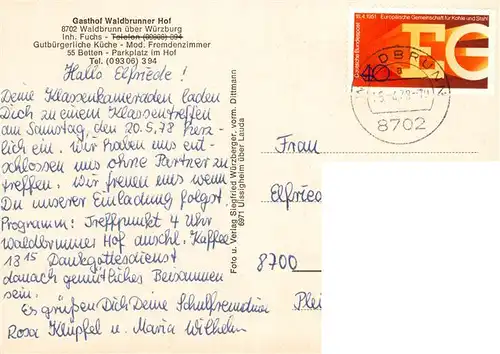 Gasthof Waldbrunner Hof
8702 Waldbrunn über Würzburg
Inh. Fuchs - Telefon (09306) 394
Gutbürgerliche Küche - Mod. Fremdenzimmer
55 Betten - Parkplatz im Hof
Tel. (09306) 394
Hallo Elfriede!
Deine Klassenkameraden laden
Dich zu einem Klassentreffen
am Samstag, den 20.5.78 herz-
lich ein. Wir haben uns ent-
schlossen uns ohne Partner zu
treffen. Wir freuen uns wenn
Du unserer Einladung folgst.
Programm: Treffpunkt 4 Uhr
Waldbrunner Hof anschl. Kaffee
18 15 Dankgottesdienst
danach gemütliches Beisammen
sein.
Es grüßen Dich Deine Schulfreundinnen
Rosa Klüpfel u. Maria Wilhelm
Foto u. Verlag Siegfried Würzberger, vorm. Dittmann
6971 Uissigheim über Lauda
18.4.1951 Europäische Gemeinschaft für Kohle und Stahl
Deutsche Bundespost
40
EG
WALDBRUNN
8702
Frau
Elfried
8700
Plei